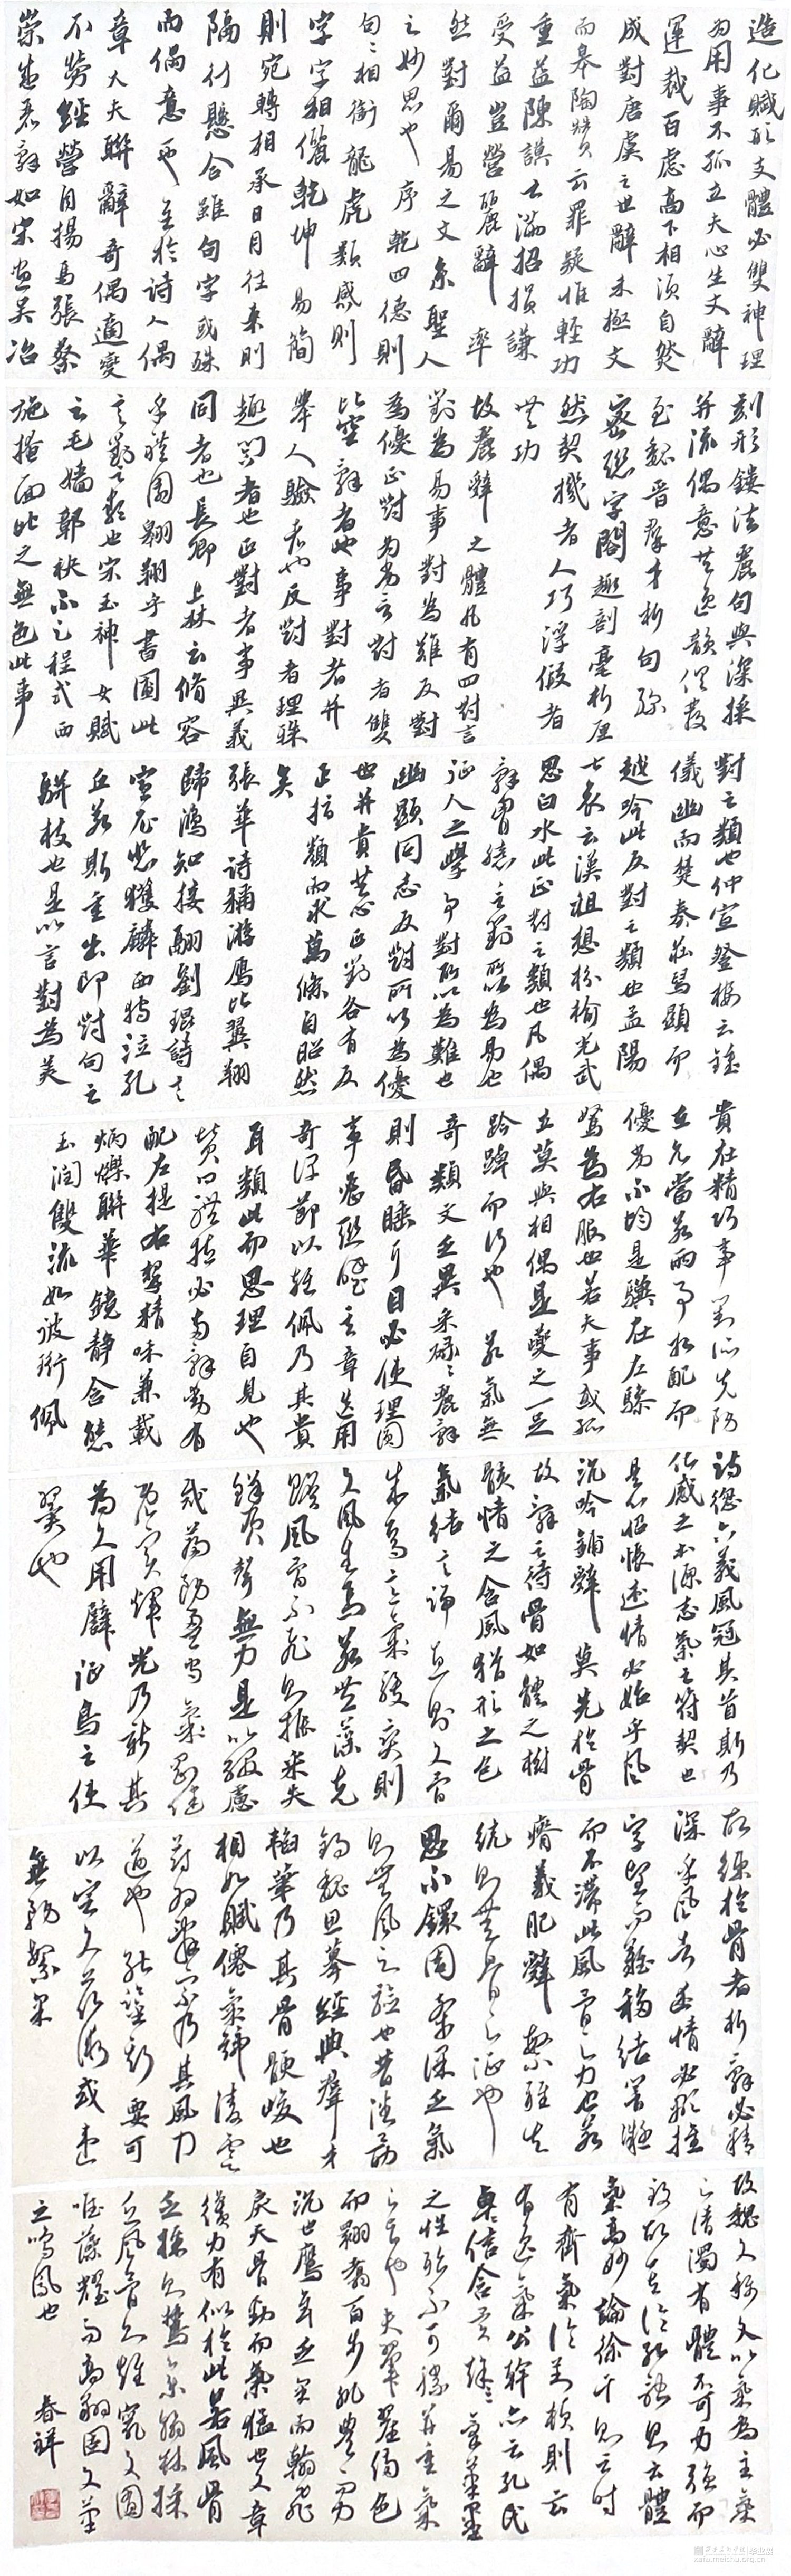 造化賦形支體必雙神理
為用事不孤立夫心生文辭
運裁百慮高下相須自然
成對唐虞之世辭未極文
而皋陶贊云罪疑惟輕功
重益陳謨云滿招損謙
受益豈營麗辭率
然對爾易之文系聖人
之妙思也序乾四德則
句々相銜龍虎類感則
字字相儷乾坤易簡
則宛轉相承日月往來則
隔行懸合雖句字或殊
而偶意一也至於詩人偶
章大夫聯辭奇偶適變
不勞經營自揚馬張蔡
崇盛麗辭如宋畫吳冶
刻形鏤法麗句與深採
并流偶意共逸韻俱發
至魏晉群才析句彌
密聯字合趣剖毫析厘
然契機者入巧浮假者
無功
故麗辭之體凡有四對言
對為易事對為難反對
為優正對為劣言對者雙
比空辭者也事對者并
舉人驗者也反對者理殊
趣合者也正對者事異義
同者也長卿上林云脩容
乎禮園翱翔乎書圃此
言對之類也宋玉神女賦
云毛嬙鄣袂不足程式西
施掩面比之無色此事
對之類也仲宣登樓云鍾
儀幽而楚奏莊舄顯而
越吟此反對之類也孟陽
七哀云漢祖想枌榆光武
思白水此正對之類也凡偶
辭胸臆言對所以為易也
征人之學事對所以為難也
幽顯同志反對所以為優
也并貴共心正對各有反
正指類而求萬條自昭然
矣
張華詩稱游雁比翼翔
歸鴻知接翮劉琨詩言
宣尼悲獲麟西狩泣孔
丘若斯重出即對句之
駢枝也是以言對為美
貴在精巧事對所先務
在允當若兩事相配而
優劣不均是驥在左驂
駑為右服也若夫事或孤
立莫與相偶是夔之一足
趻踔而行也若氣無
奇類文乏異采碌々麗辭
則昏睡耳目必使理圓
事密聯璧其章迭用
奇偶節以雜佩乃其貴
耳類此而思理自見也
贊曰體植必兩辭動有
配左提右挈精味兼載
炳爍聯華鏡靜含態
玉潤雙流如彼珩佩
詩總六義風冠其首斯乃
化感之本源志氣之符契也
是以怊悵述情必始乎風
沉吟鋪辭莫先於骨
故辭之待骨如體之樹
骸情之含風猶形之包
氣結言端直則文骨
成焉意氣駿爽則
文風生焉若豐藻克
贍風骨不飛則振采失
鮮負聲無力是以綴慮
裁篇務盈守氣剛健
既實輝光乃新其
為文用辟征鳥之使
翼也
故練於骨者析辭必精
深乎風者述情必顯捶
字堅而難移結響凝
而不滯此風骨之力也若
瘠義肥辭繁雜失
統則無骨之征也
思不環周索莫乏氣
則無風之驗也昔潘勖
錫魏思摹經典群才
韜筆乃其骨髓峻也
相如賦仙氣號凌雲
蔚為辭宗乃其風力
遒也能鑒斯要可
以定文茲術或違
無務繁采
故魏文稱文以氣為主氣
之清濁有體不可力強而
致故其論孔融則云體
氣高妙論徐幹則云時
有齊氣論劉楨則云
有逸氣公幹亦云孔氏
卓卓信含異氣筆墨
之性殆不可勝并重氣
之旨也夫翬翟備色
而翾翥百步肌豐而力
沉也鷹隼乏采而翰飛
戾天骨勁而氣猛也文章
才力有似於此若風骨
乏採則鷙集翰林採
乏風骨則雉竄文囿
唯藻耀而高翔固文筆
之鳴鳳也 春祥